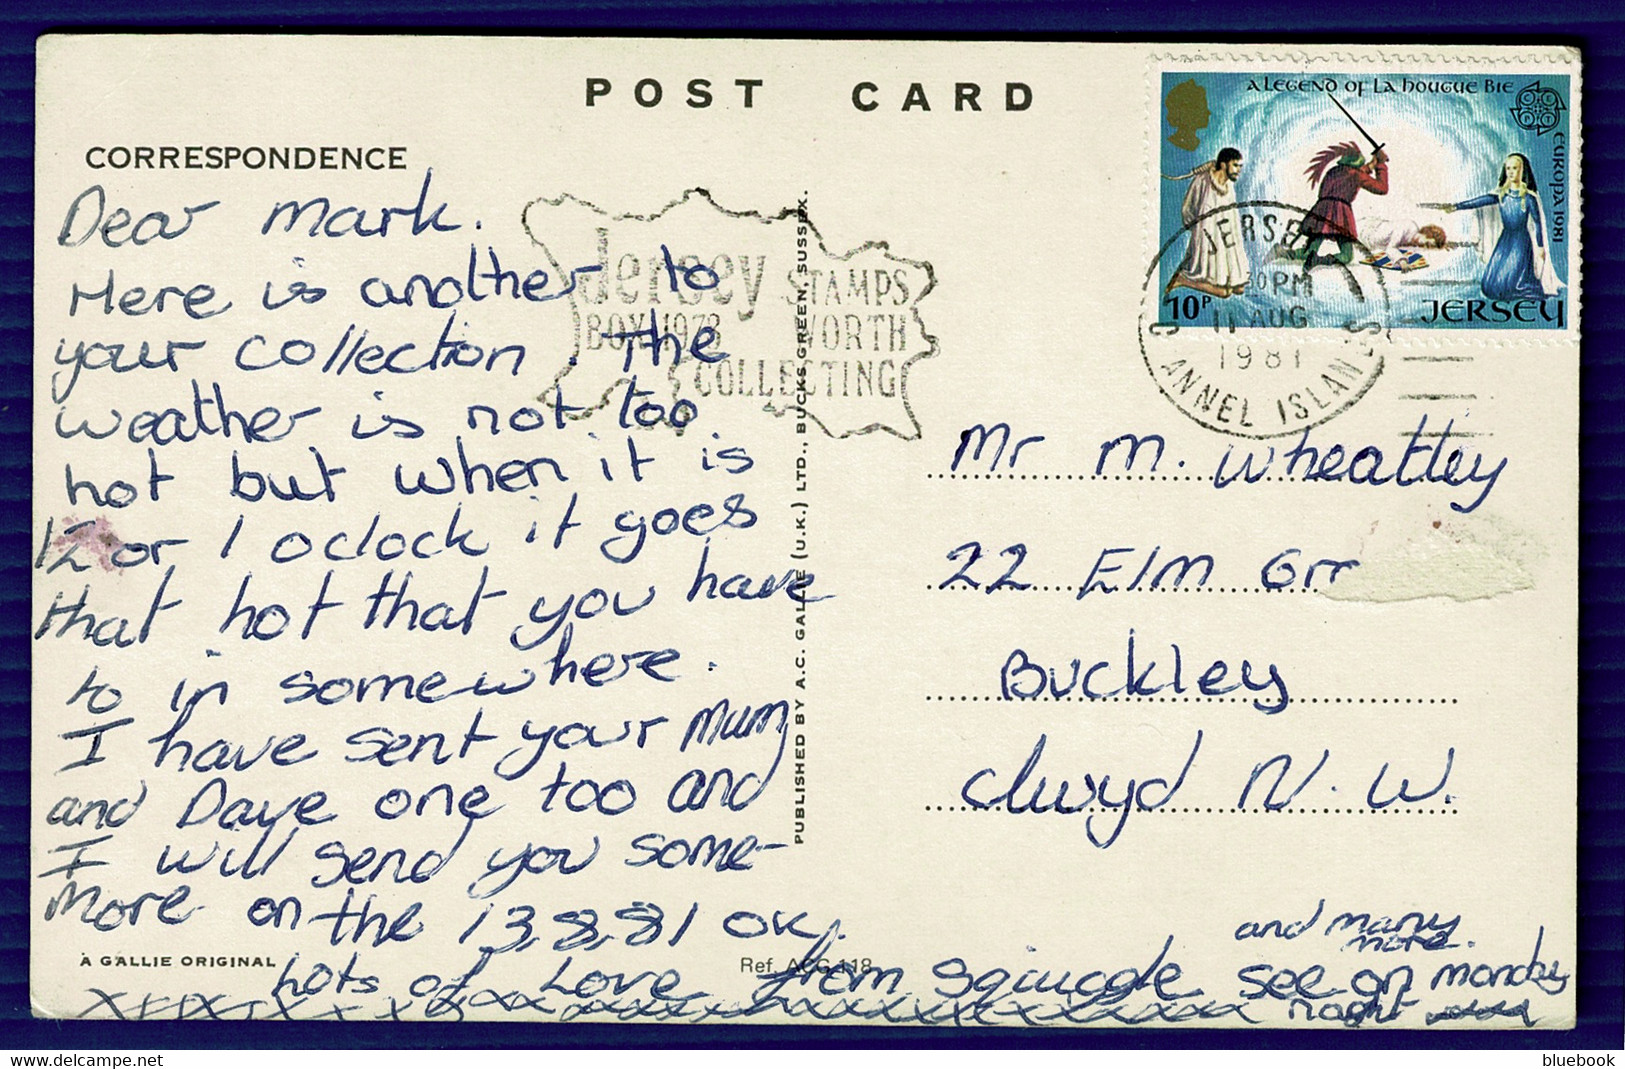 POST CARD
CORRESPONDENCE
Dear Mark.
Here is another to
your collection. The
weather is not too
hot but when it is
12 or 1 oclock it goes
that hot that you have
to in somewhere.
I have sent your Mum
and Dave one too and
I will send you some-
More on the 13.8.81 OK.
Lots of Love from
and many
more.
see on monday
naght
xxxxxxxxxxxxxxxxxxxxxxxx
A GALLIE ORIGINAL
Ref. ACG 118
PUBLISHED BY A.C. GALLIE (U.K.) LTD., BUCKS GREEN, SUSSEX.
Jersey STAMPS
BOX 1978 WORTH
COLLECTING
A LEGEND OF LA HOUGUE BIE
EUROPA 1981
10P
JERSEY
JERSEY
30 PM
11 AUG
1981
CHANNEL ISLANDS
Mr M. Wheatley
22 Elm Grr
Buckley
Clwyd N.W.
bluebook